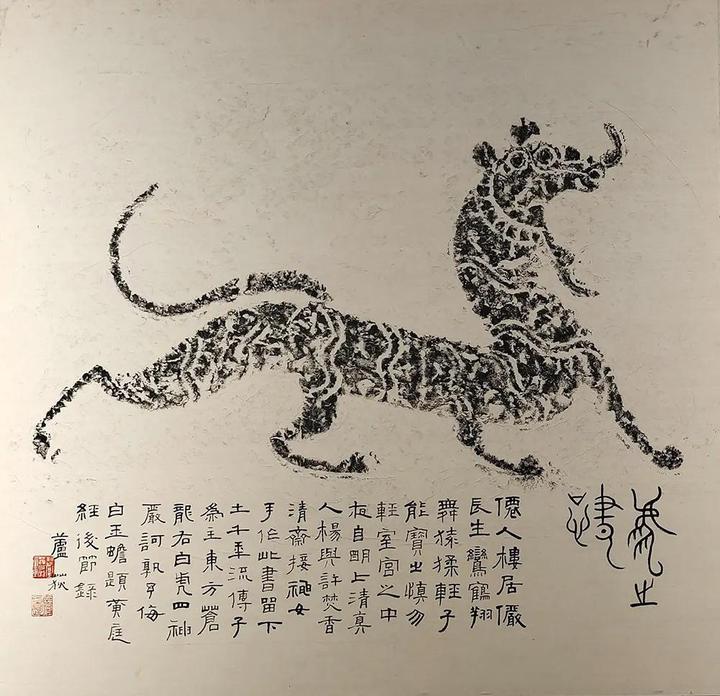 之
僊人樓居儼
長生鸞鶴翔
舞猿猱輕子
能寶之慎勿
輕室宮之中
夜自明上清真
人楊與許焚香
清齋接神女
手作此書留下
土千年流傳子
為主東方蒼
龍右白虎四神
嚴訶孰予侮
白玉蟾題黃庭
經後節錄
蘆荻